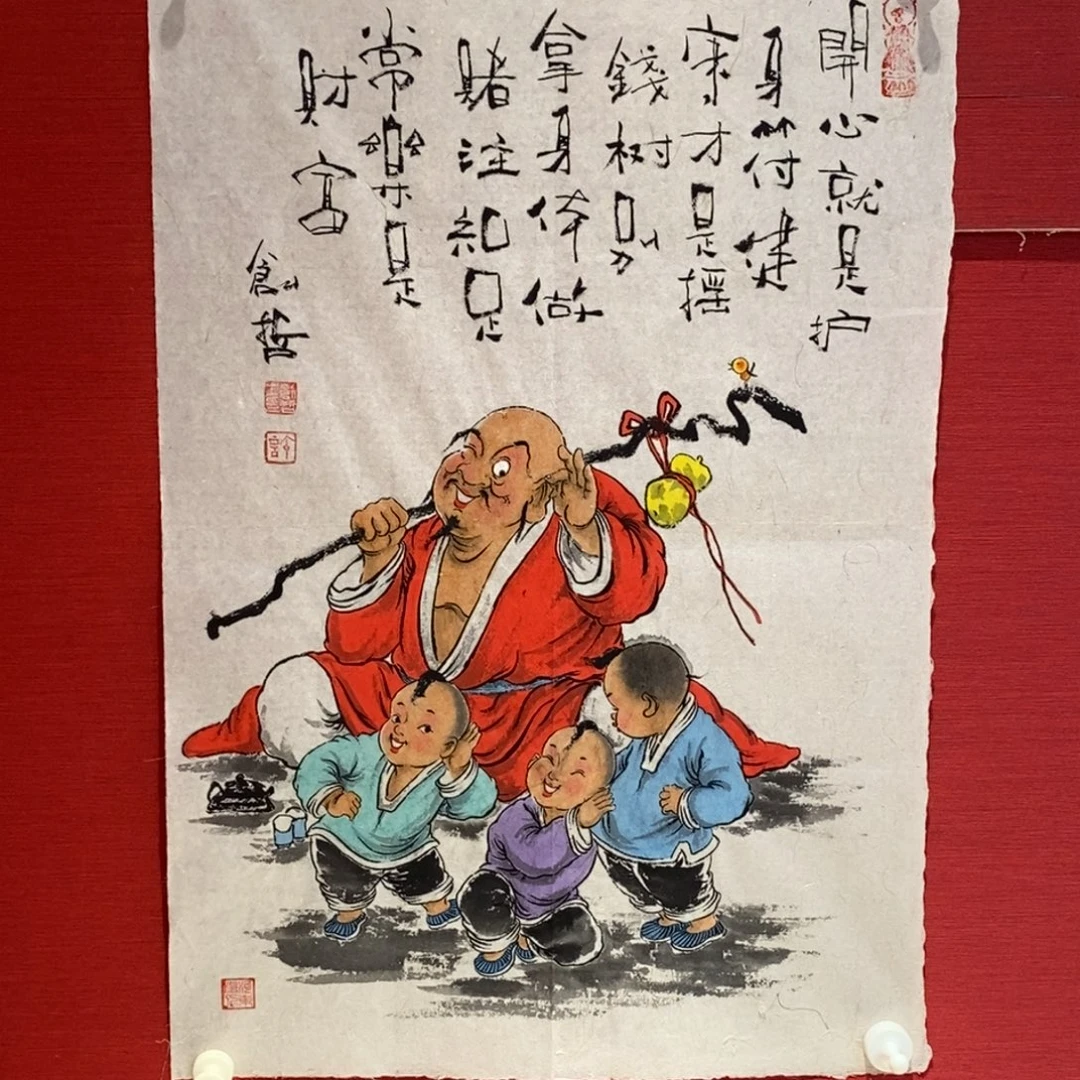 開心就是护
身符健
康才是摇
錢树别
拿身体做
赌注知足
常樂是
財富
創哲